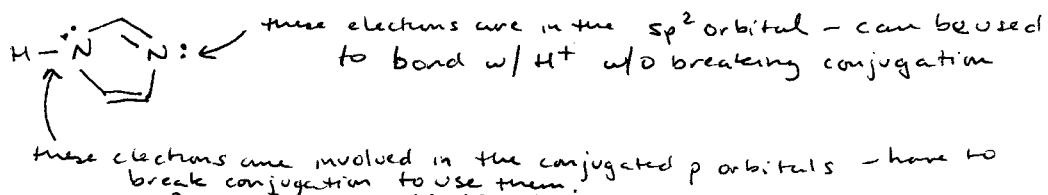 these electrons are in the sp² orbital – can be used
H – N̈ N: to bond w/ H⁺ w/o breaking conjugation
these electrons are involved in the conjugated p orbitals – have to
break conjugation to use them.